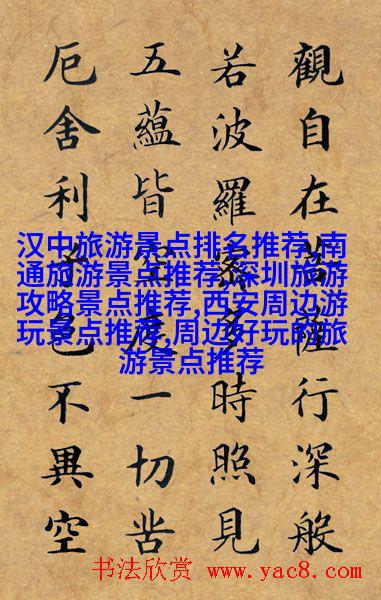 觀自在菩薩行深般
若波羅蜜多時照見
五蘊皆空度一切苦
厄舍利子色不異空
汉中旅游景点排名推荐,南
通旅游景点推荐,深圳旅游
攻略景点推荐,西安周边游
玩景点推荐,周边好玩的旅
游景点推荐
书法欣赏 www.yac8.com